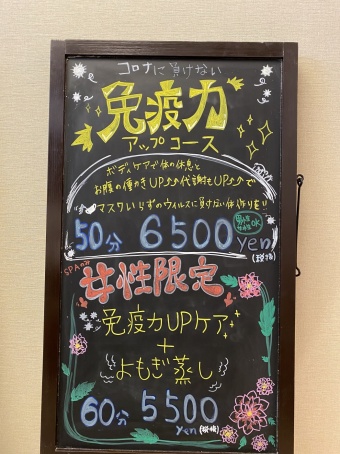 コロナに負けない
免疫力
アップコース
ボディケアで体の休息と
お腹の働きUP↗↗代謝もUP↗↗で
マスクいらずのウィルスに負けない体作りを!!
50分 6500yen
男性女性OK
女性限定
免疫力UPケア
+
よもぎ蒸し
60分 5500
yen